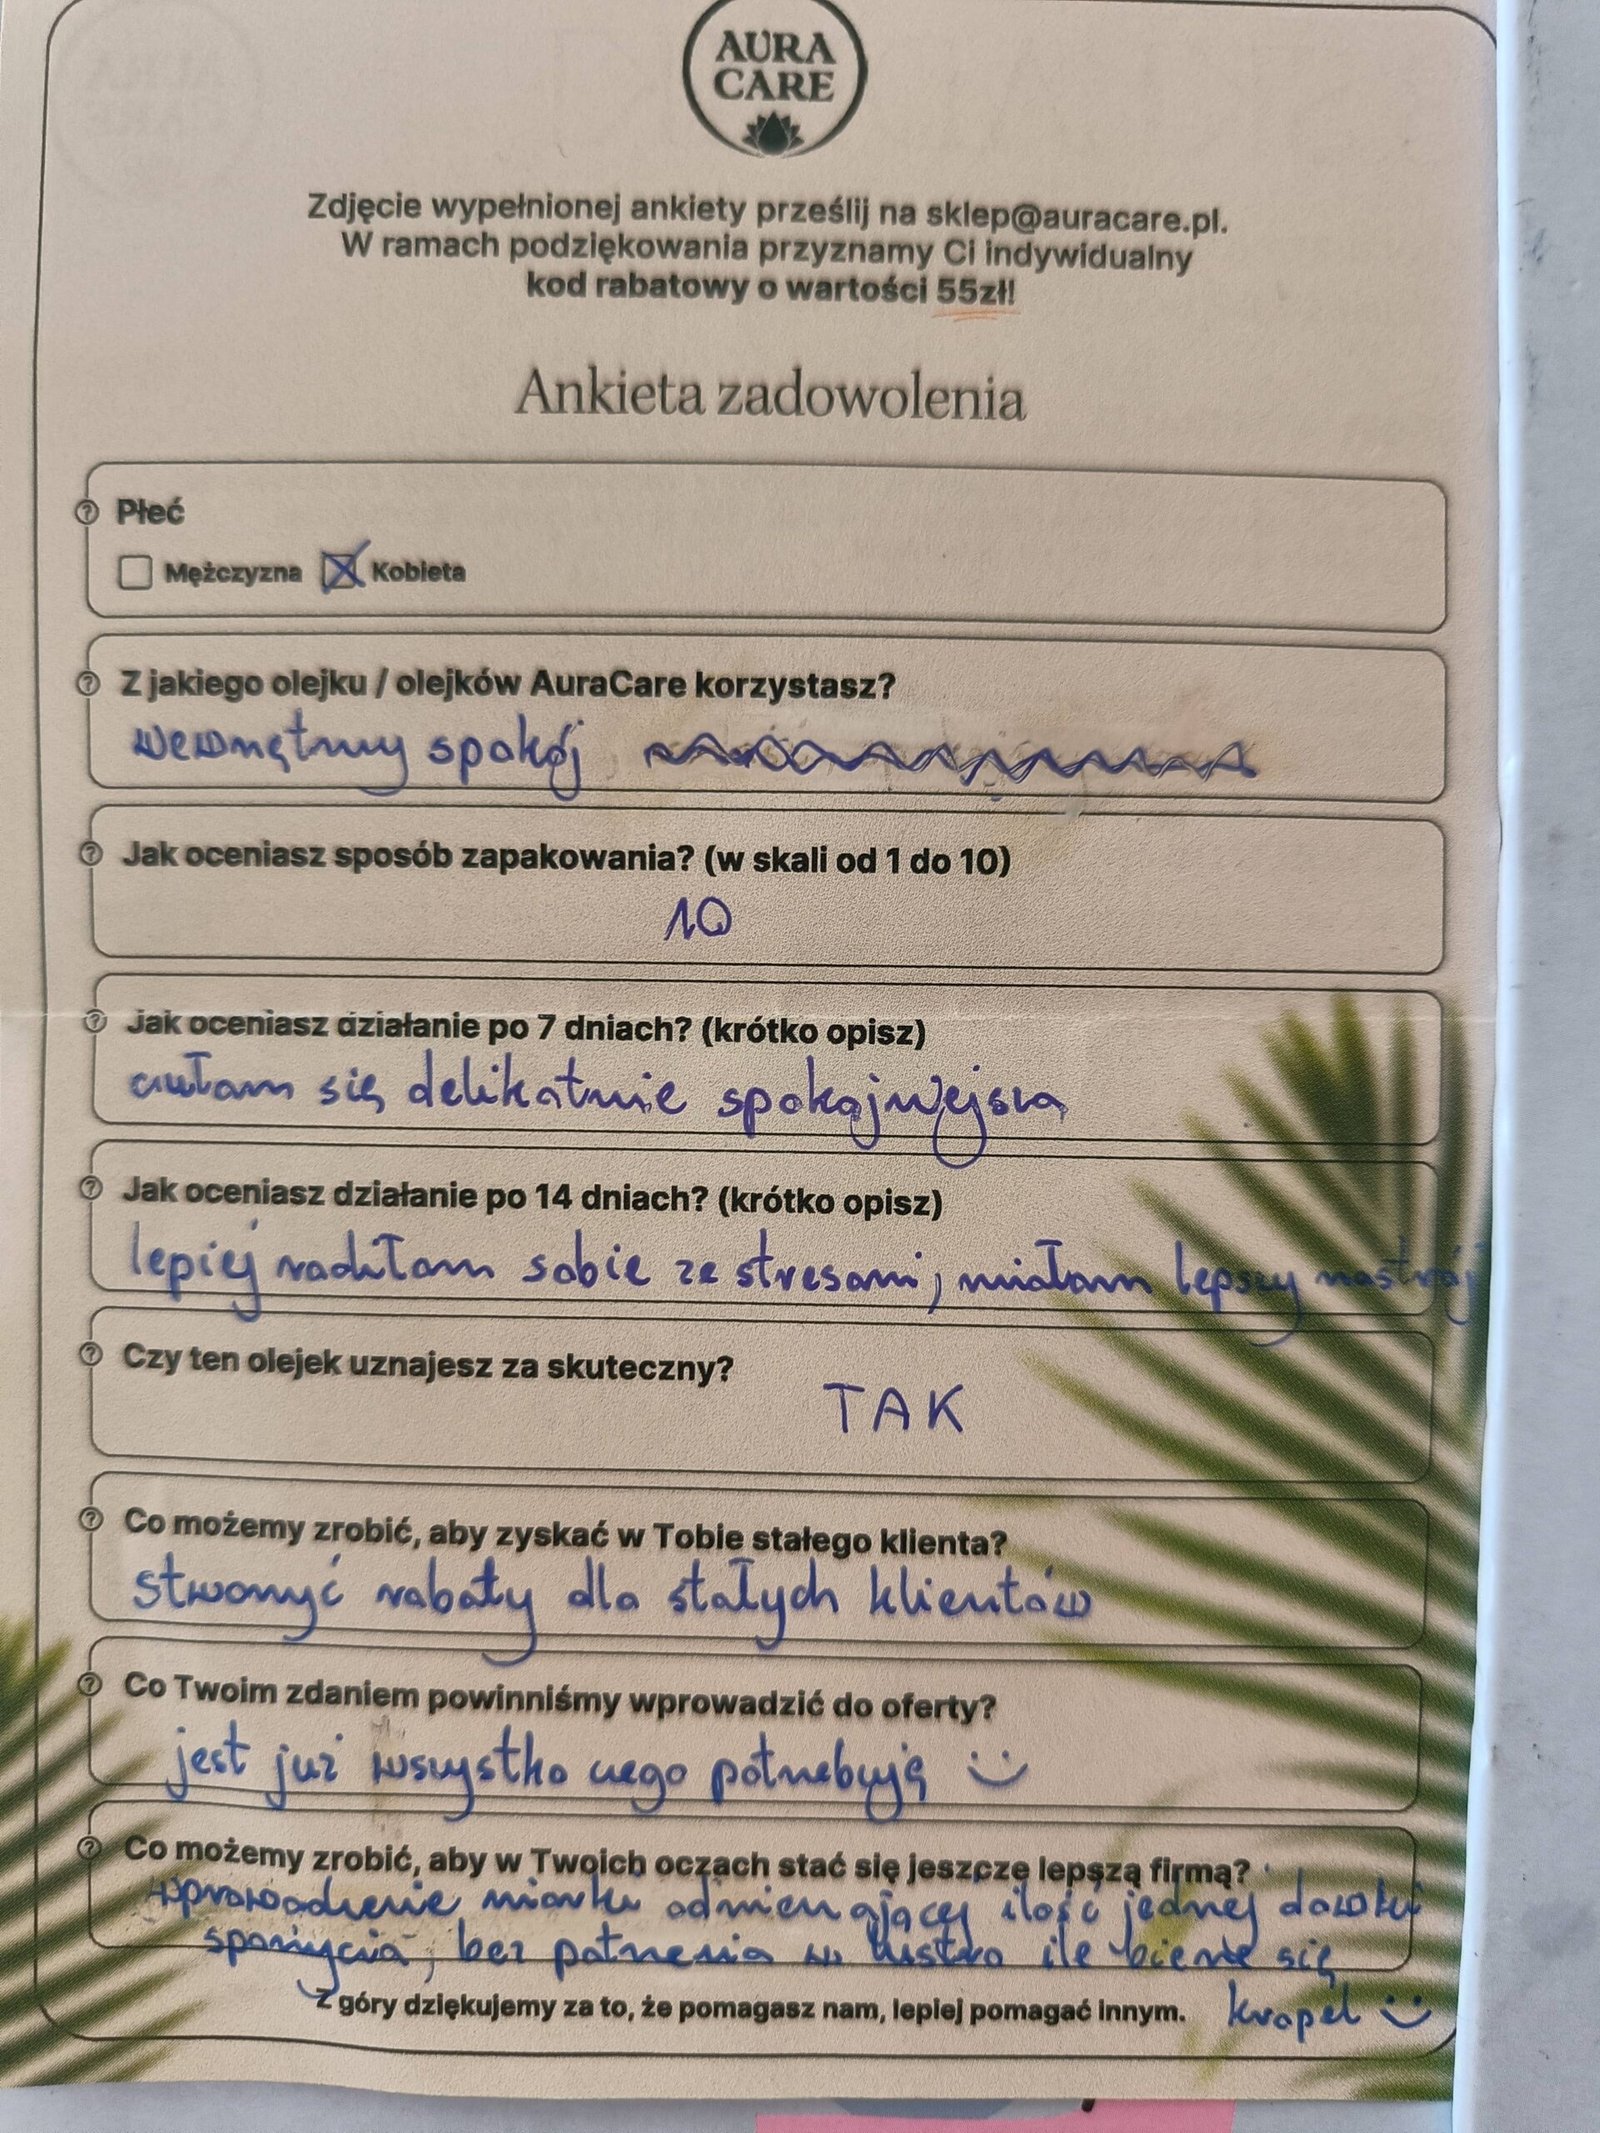 AURA
CARE
Zdjęcie wypełnionej ankiety prześlij na sklep@auracare.pl.
W ramach podziękowania przyznamy Ci indywidualny
kod rabatowy o wartości 55zł!
Ankieta zadowolenia
Płeć
Mężczyzna Kobieta
Z jakiego olejku / olejków AuraCare korzystasz?
wewnętrzny spokój
Jak oceniasz sposób zapakowania? (w skali od 1 do 10)
10
Jak oceniasz działanie po 7 dniach? (krótko opisz)
czułam się delikatnie spokojniejsza
Jak oceniasz działanie po 14 dniach? (krótko opisz)
lepiej radziłam sobie ze stresami, miałam lepszy nastrój
Czy ten olejek uznajesz za skuteczny?
TAK
Co możemy zrobić, aby zyskać w Tobie stałego klienta?
stworzyć rabaty dla stałych klientów
Co Twoim zdaniem powinniśmy wprowadzić do oferty?
jest już wszystko czego potrzebuję
Co możemy zrobić, aby w Twoich oczach stać się jeszcze lepszą firmą?
wprowadzenie miarki odmierzającej ilość jednej dawki
spożycia, bez patrzenia w lustro ile bierze się
Z góry dziękujemy za to, że pomagasz nam, lepiej pomagać innym. kropel